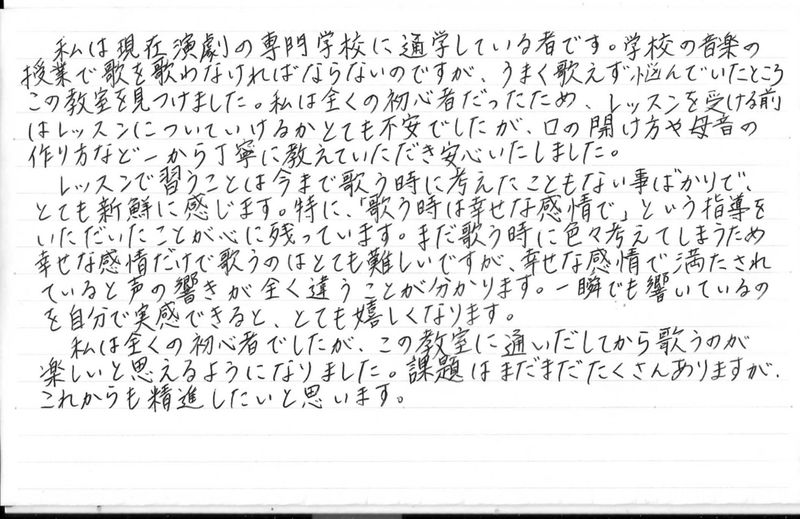 私は現在演劇の専門学校に通学している者です。学校の音楽の
授業で歌を歌わなければならないのですが、うまく歌えず悩んでいたところ
この教室を見つけました。私は全くの初心者だったため、レッスンを受ける前
はレッスンについていけるかとても不安でしたが、口の開け方や母音の
作り方など一から丁寧に教えていただき安心いたしました。
レッスンで習うことは今まで歌う時に考えたこともない事ばかりで、
とても新鮮に感じます。特に、「歌う時は幸せな感情で」という指導を
いただいたことが心に残っています。まだ歌う時に色々考えてしまうため
幸せな感情だけで歌うのはとても難しいですが、幸せな感情で満たされ
ていると声の響きが全く違うことが分かります。一瞬でも響いているの
を自分で実感できると、とても嬉しくなります。
私は全くの初心者でしたが、この教室に通いだしてから歌うのが
楽しいと思えるようになりました。課題はまだまだたくさんありますが、
これからも精進したいと思います。